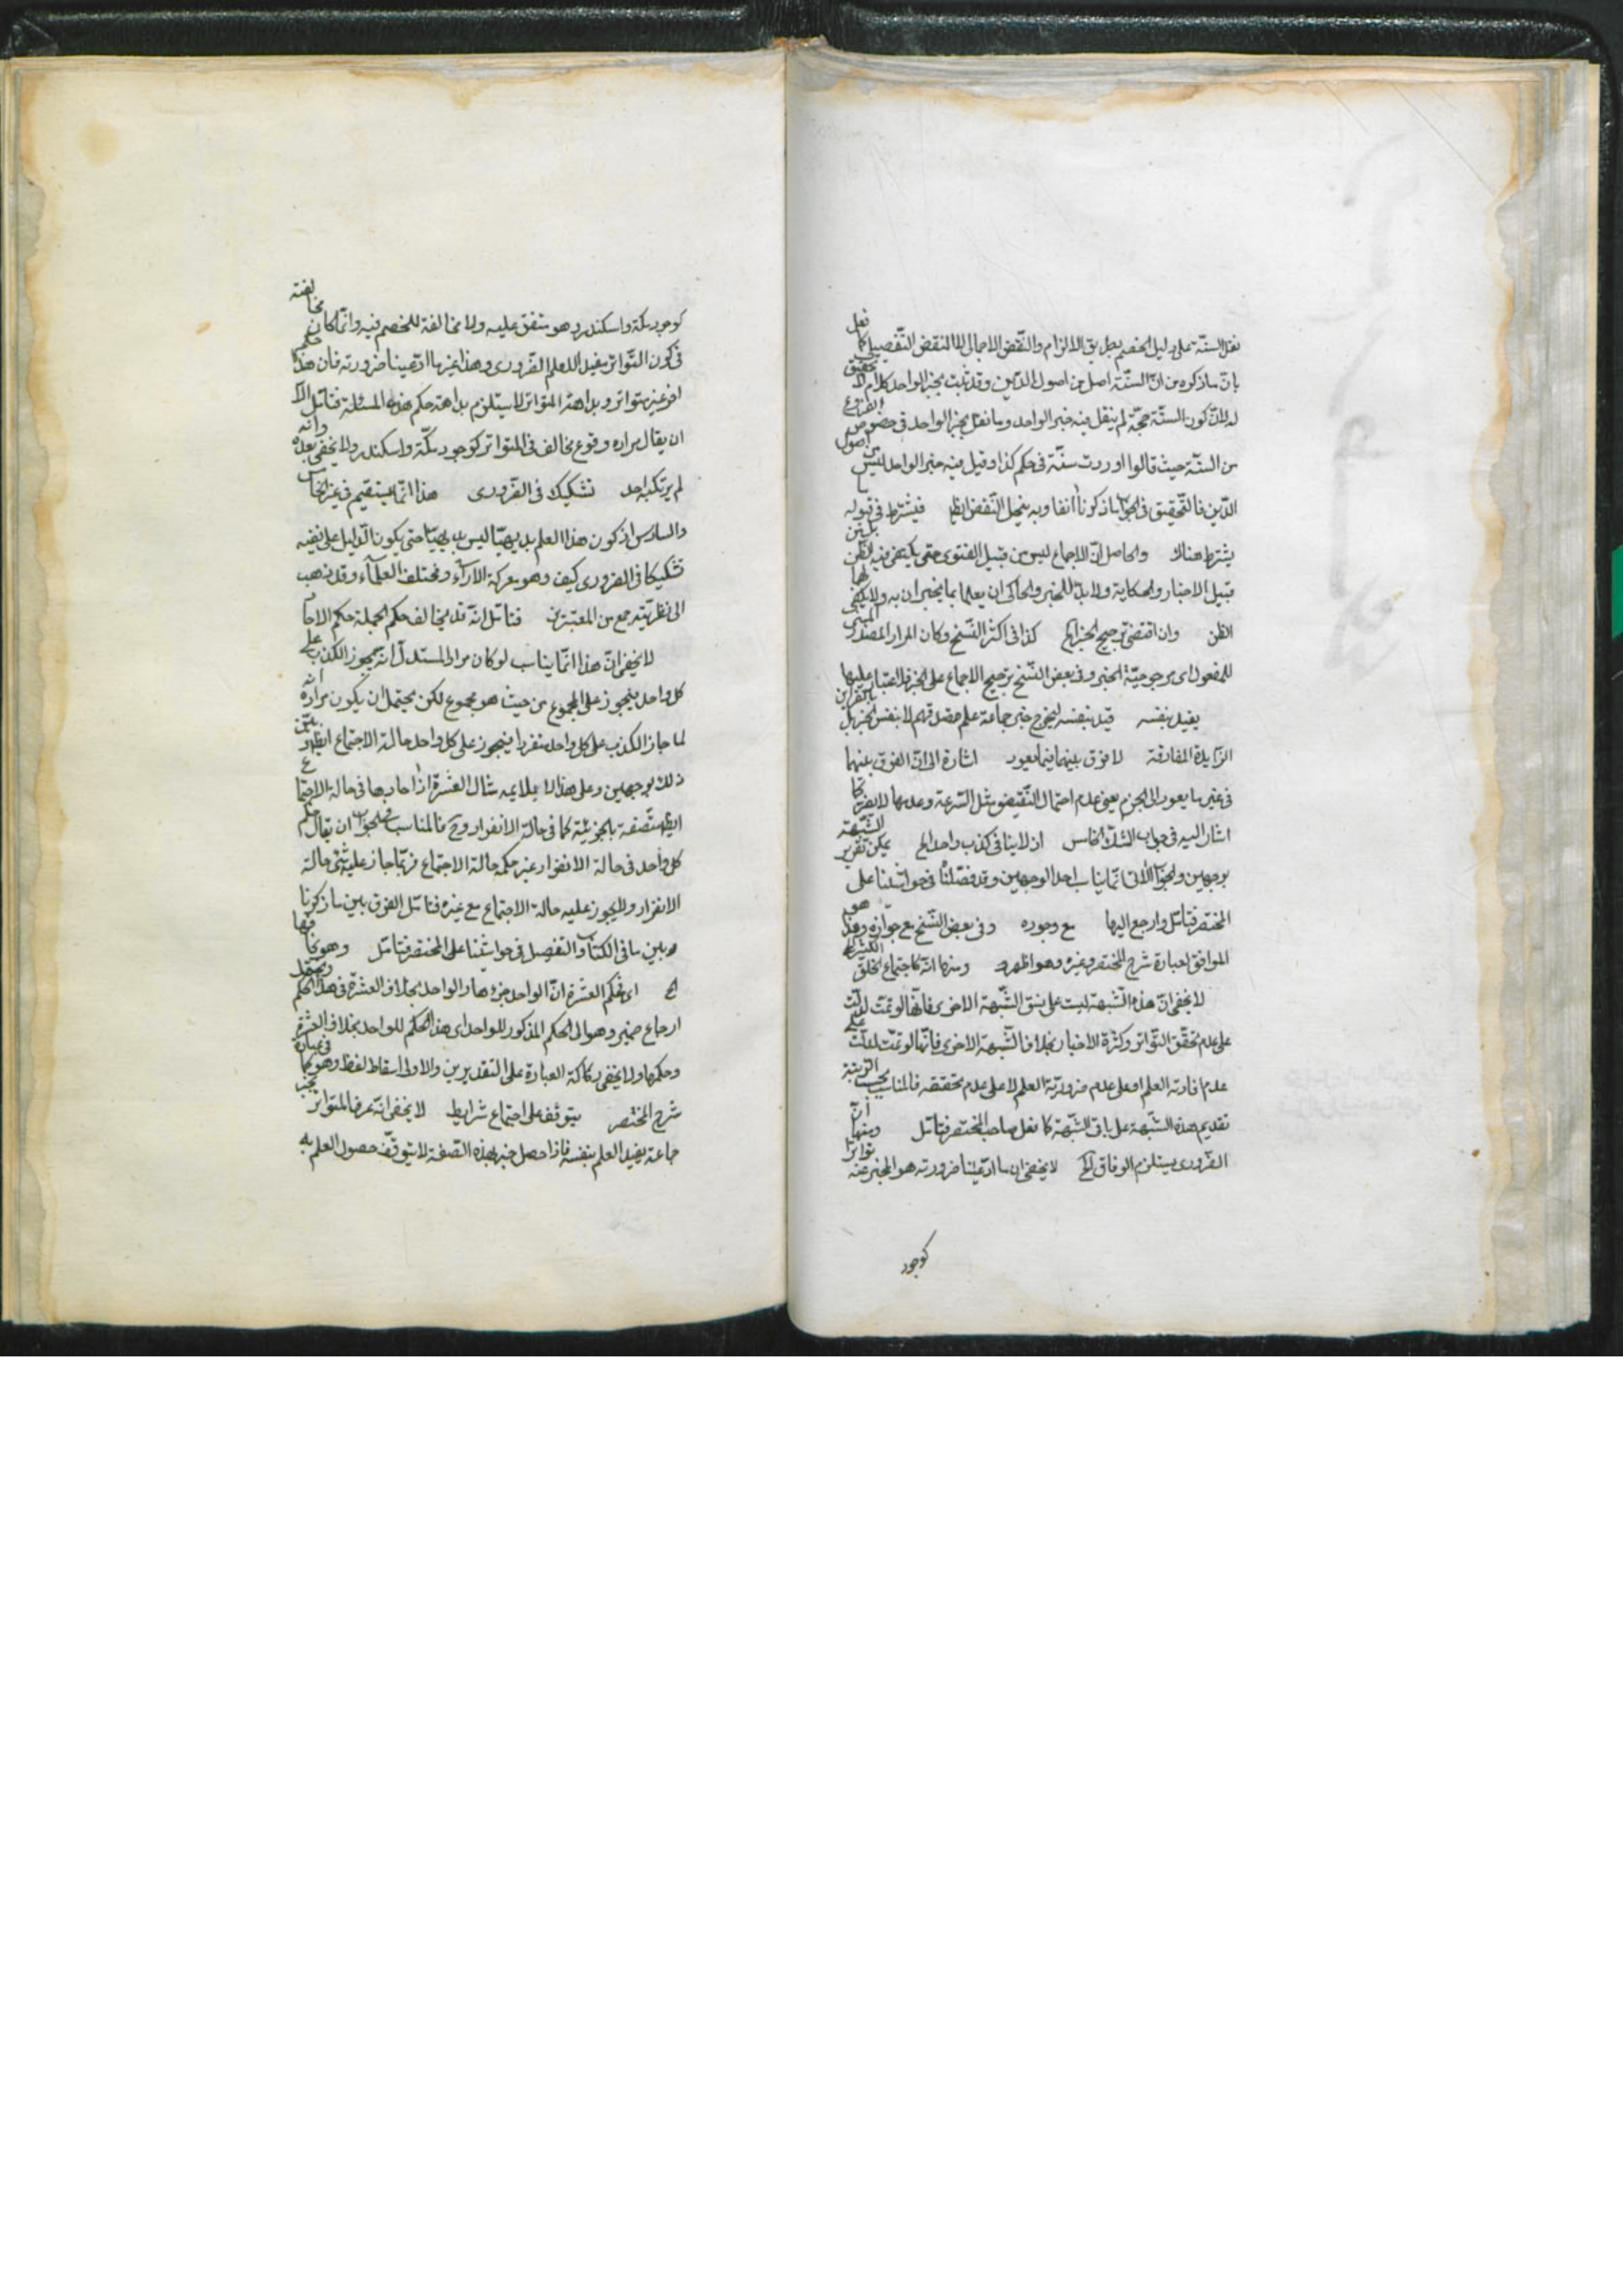 نقل السنة على دليل الخصم بطريق الالزام والنقض الاجمالى لا النقض التفصيلى كما فعل
بان ما ذكره من ان السنة اصل من اصول الدين وقد ثبت بخبر الواحد كلام لا تحقيق
له لان كون السنة حجة لم ينقل فيه خبر الواحد وما نقل بخبر الواحد فى خصوص الفروع
من السنة حيث قالوا وردت سنة فى حكم كذا وقيل فيه خبر الواحد ليس من اصول
الدين فالتحقيق فى الجواب ما ذكرنا آنفا وبه ينحل النقض ايضا فيشترط فى قبوله ما
يشترط هناك والحاصل ان الاجماع ليس من قبيل الفتوى حتى يكتفى فيه الظن بل من
قبيل الاخبار والحكاية ولا بد للمخبر والحاكى ان يعلما بما يخبران به ولا يكفى لهما
الظن وان اقتضى ترجيح الخبر الخ كذا فى اكثر النسخ وكان المراد المصدر المبنى
للمفعول اى مرجوحية الخبر وفى بعض النسخ ترجيح الاجماع على الخبر فلا غبار عليها
يفيد بنفسه قيد بنفسه ليخرج خبر جماعة علم صدقهم لا بنفس الخبر بل بالقراين
الزايدة المفارقة لا فرق بينهما فيما يعود اشارة الى ان الفرق بينهما
فى غير ما يعود الى الجزم يعنى عدم احتمال النقيض مثل السرعة وعدمها لا يضر كما
اشار اليه فى جواب الشك الخامس اذ لا ينافى كذب واحد الخ يمكن تقرير الشبهة
بوجهين والجواب الاتى انما يناسب احد الوجهين وقد فصلنا فى حواشينا على
المختصر فتامل وارجع اليها مع وجوده وفى بعض النسخ مع جوازه وهذا هو
الموافق لعبارة شرح المختصر وغيره وهو اظهر ومنها انه كاجتماع الخلق الكثير على
لا يخفى ان هذه الشبهة ليست على نسق الشبهة الاخرى فانها لو تمت لدلت
على عدم تحقق التواتر وكثرة الاخبار بخلاف الشبهة الاخرى فانها لو تمت لدلت على
عدم افادته العلم او على عدم ضرورية العلم لا على عدم تحققه فالمناسب بحسب الترتيب
تقديم هذه الشبهة على باقى الشبهة كما نقل صاحب المختصر فتامل ومنها ان
الضرورى يستلزم الوفاق الخ لا يخفى ان ما ادعينا ضرورته هو المخبر عنه تواترا
كوجود
كوجود مكة واسكندر وهو متفق عليه ولا مخالفة للخصم فيه وانما كان مخالفته
فى كون التواتر مفيدا للعلم الضرورى وهذا غير ما ادعينا ضرورته فان هذا حكم
اخر غير متواتر وبداهة المتواتر لا يستلزم بداهة حكم هذه المسئلة فتامل الا
ان يقال مراده وقوع مخالف فى المتواتر كوجود مكة واسكندر ولا يخفى بعده وانه
لم يرتكبه احد تشكيك فى الضرورى هذا انما يستقيم فى غير الخامس
والسادس اذ كون هذا العلم بديهيا ليس بديهيا حتى يكون الدليل على نفيه
تشكيكا فى الضرورى كيف وهو معركة الاراء ومختلف العلماء وقد ذهب
الى نظريته جمع من المعتبرين فتامل انه قد يخالف حكم الجملة حكم الاحاد
لا يخفى ان هذا انما يناسب لو كان مراد المستدل انه يجوز الكذب على
كل واحد فيجوز على المجموع من حيث هو مجموع لكن يحتمل ان يكون مراده انه
لما جاز الكذب على كل واحد منفردا فيجوز على كل واحد حالة الاجتماع ايضا وبين
ذلك بوجهين وعلى هذا لا يلايمه مثال العشرة اذ احادها فى حالة الاجتماع
ايضا متصفة بالجزئية كما فى حالة الانفراد وح فالمناسب فى الجواب ان يقال حكم
كل واحد فى حالة الانفراد غير حكمه حالة الاجتماع فربما جاز عليه شئ حالة
الانفراد ولا يجوز عليه حالة الاجتماع مع غيره فتامل الفرق بين ما ذكرنا
وبين ما فى الكتاب والتفصيل فى حواشينا على المختصر فتامل وهو بخلافها
الخ اى حكم العشرة ان الواحد جزءها والواحد بخلاف العشرة فى هذا الحكم ويحتمل
ارجاع ضمير وهو الى الحكم المذكور للواحد اى هذا الحكم للواحد بخلاف العشرة
وحكمها ولا يخفى ركاكة العبارة على التقديرين والاولى اسقاط لفظ وهو كما فى عبارة
شرح المختصر يتوقف على اجتماع شرايط لا يخفى انه عرف المتواتر بخبر
جماعة يفيد العلم بنفسه فاذا حصل خبر بهذه الصفة لا يتوقف حصول العلم به